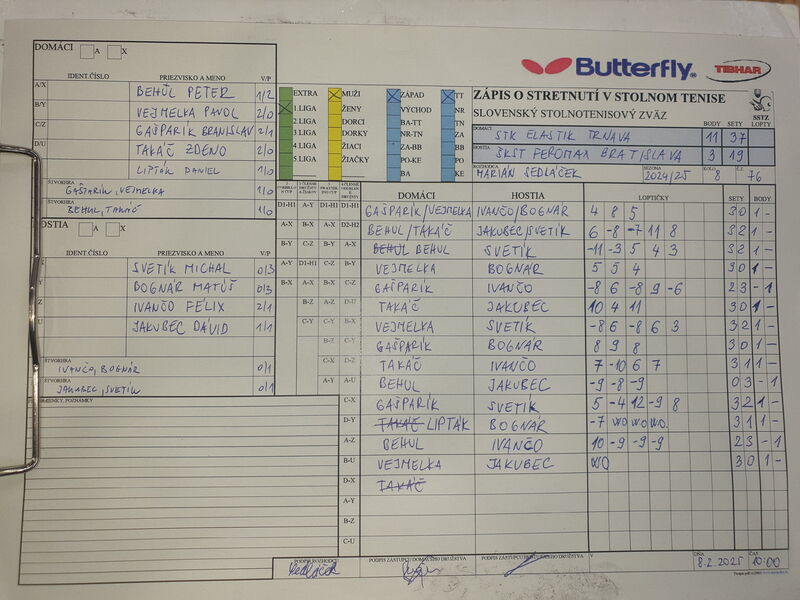 DOMÁCI A X
IDENT.ČÍSLO PRIEZVISKO A MENO V/P
A/X BEHÚL PETER 1/2
B/Y VEJMELKA PAVOL 2/0
C/Z GAŠPARÍK BRANISLAV 2/1
D/U TAKÁČ ZDENO 2/0
LIPTÁK DANIEL 1/0
ŠTVORHRA
GAŠPARÍK, VEJMELKA 1/0
ŠTVORHRA
BEHUL, TAKÁČ 1/0
OSTIA A X
IDENT.ČÍSLO PRIEZVISKO A MENO V/P
SVETÍK MICHAL 0/3
BOGNÁR MATÚŠ 0/3
Z IVANČO FÉLIX 2/1
U JAKUBEC DÁVID 1/1
ŠTVORHRA
IVANČO, BOGNÁR 0/1
ŠTVORHRA
JAKUBEC, SVETÍK 0/1
POZNÁMKY
Butterfly
TIBHAR
EXTRA MUŽI ZÁPAD TT
1.LIGA ŽENY VÝCHOD NR
2.LIGA DORCI BA-TT TN
3.LIGA DORKY NR-TN ZA
4.LIGA ŽIACI ZA-BB BB
5.LIGA ŽIAČKY PO-KE PO
BA KE
ZÁPIS O STRETNUTÍ V STOLNOM TENISE
SLOVENSKÝ STOLNOTENISOVÝ ZVÄZ
SSTZ
BODY SETY LOPTY
DOMÁCI STK ELASTIK TRNAVA 11 37
HOSTIA ŠKST FEROMAX BRATISLAVA 3 19
ROZHODCA MARIÁN SEDLÁČEK SEZÓNA 2024/25 KOLO 8 Č. 76
DOMÁCI HOSTIA LOPTIČKY SETY BODY
D1-H1 A-Y D1-H1 D1-H1 GAŠPARÍK/VEJMELKA IVANČO/BOGNÁR 4 8 5 3 0 1 -
A-X B-X A-X D2-H2 BEHUL/TAKÁČ JAKUBEC/SVETÍK 6 -8 -7 11 8 3 2 1 -
B-Y C-Z B-Y A-X BEHUL BEHUL SVETÍK -11 -3 5 4 3 3 2 1 -
A-Y D1-H1 C-Z B-Y VEJMELKA BOGNÁR 5 5 4 3 0 1 -
B-X A-X B-X C-Z GAŠPARÍK IVANČO -8 6 -8 9 -6 2 3 - 1
B-Z A-Z D-U TAKÁČ JAKUBEC 10 4 11 3 0 1 -
C-Y C-Y B-X VEJMELKA SVETÍK -8 6 -8 6 3 3 2 1 -
B-Z C-Y GAŠPARÍK BOGNÁR 8 9 8 3 0 1 -
C-X D-Z TAKÁČ IVANČO 7 -10 6 7 3 1 1 -
A-Y A-U BEHUL JAKUBEC -9 -8 -9 0 3 - 1
C-X GAŠPARÍK SVETÍK 5 -4 12 -9 8 3 2 1 -
D-Y TAKÁČ LIPTÁK BOGNÁR -7 WO WO WO 3 1 1 -
A-Z BEHUL IVANČO 10 -9 -9 -9 2 3 - 1
B-U VEJMELKA JAKUBEC WO 3 0 1 -
D-X TAKÁČ
A-Y
B-Z
C-U
PODPIS ROZHODCU PODPIS ZÁSTUPCU DOMÁCEHO DRUŽSTVA PODPIS ZÁSTUPCU HOSŤUJÚCEHO DRUŽSTVA V DŇA 8.2.2025 ČAS 10:00